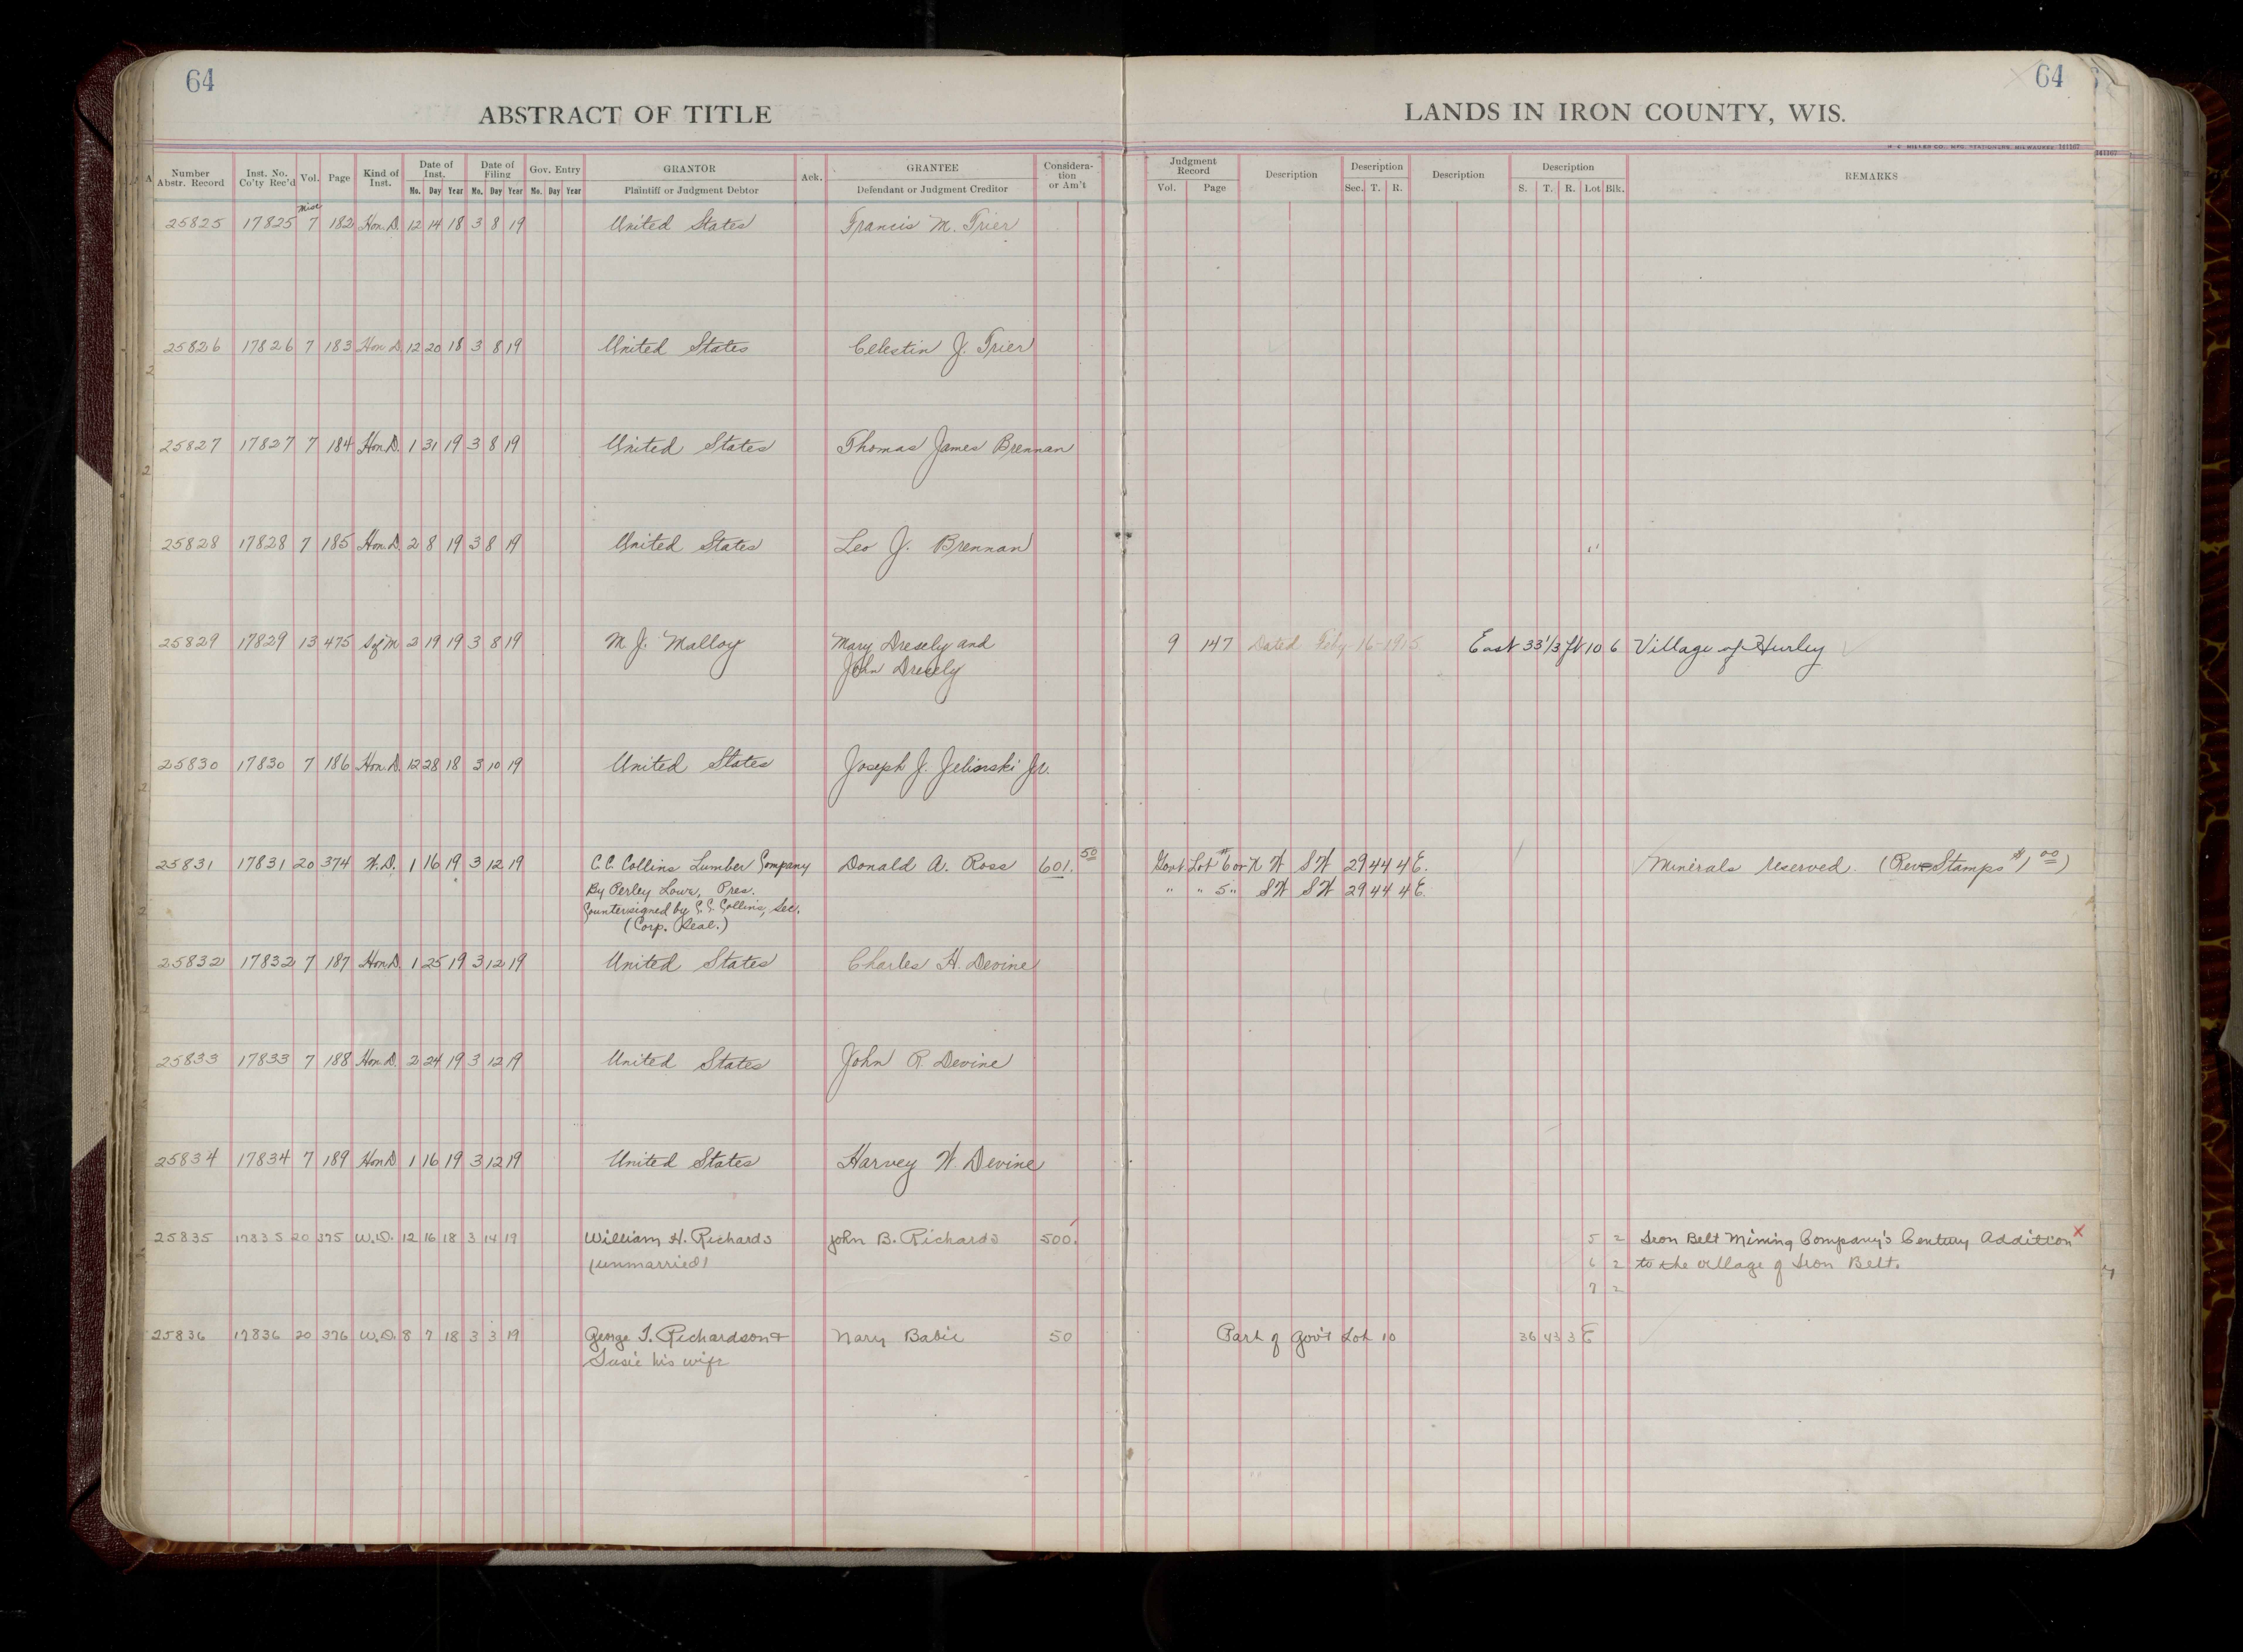 64
64
ABSTRACT OF TITLE
LANDS IN IRON COUNTY, WIS.
H. C. MILLER CO., MFG. STATIONERS, MILWAUKEE 141167
Number Abstr. Record Inst. No. Co'ty Rec'd Vol. Page Kind of Inst. Date of Inst. Mo. Day Year Date of Filing Mo. Day Year Gov. Entry Mo. Day Year GRANTOR Plaintiff or Judgment Debtor Ack. GRANTEE Defendant or Judgment Creditor Considera-tion or Am't Judgment Record Vol. Page Description Description Sec. T. R. Description Description S. T. R. Lot Blk. REMARKS
Misc
25825 17825 7 182 Hon. D. 12 14 18 3 8 19 United States Francis M. Trier
25826 17826 7 183 Hon D. 12 20 18 3 8 19 United States Celestin J. Trier
25827 17827 7 184 Hon. D. 1 31 19 3 8 19 United States Thomas James Brennan
25828 17828 7 185 Hon. D. 2 8 19 3 8 19 United States Leo J. Brennan
25829 17829 13 475 Sofm 2 19 19 3 8 19 M. J. Malloy Mary Dresely and 9 147 Dated Feby-16-1915 East 33 1/3 ft 10 6 Village of Hurley
John Dresely
25830 17830 7 186 Hon. D. 12 28 18 3 10 19 United States Joseph J. Jelinski Jr.
25831 17831 20 374 W. D. 1 16 19 3 12 19 C. C. Collins Lumber Company Donald A. Ross 601.50 Govt. Lot #6 or N W S W 29 44 4 E. Minerals reserved. (Rev Stamps $1.00)
By Perley Lowe, Pres. " " 5 " S W S W 29 44 4 E.
Countersigned by C. C. Collins, Sec.
(Corp. Seal.)
25832 17832 7 187 Hon. D. 1 25 19 3 12 19 United States Charles H. Devine
25833 17833 7 188 Hon. D. 2 24 19 3 12 19 United States John R. Devine
25834 17834 7 189 Hon D 1 16 19 3 12 19 United States Harvey W. Devine
25835 17835 20 375 W. D. 12 16 18 3 14 19 William H. Richards John B. Richards 500. 5 2 Iron Belt Mining Company's Century Addition X
(unmarried) 6 2 to the village of Iron Belt.
7 2
25836 17836 20 376 W. D. 8 7 18 3 3 19 George T. Richardson + Mary Babic 50 Part of Gov't Lot 10 36 43 3 E
Susie his wife